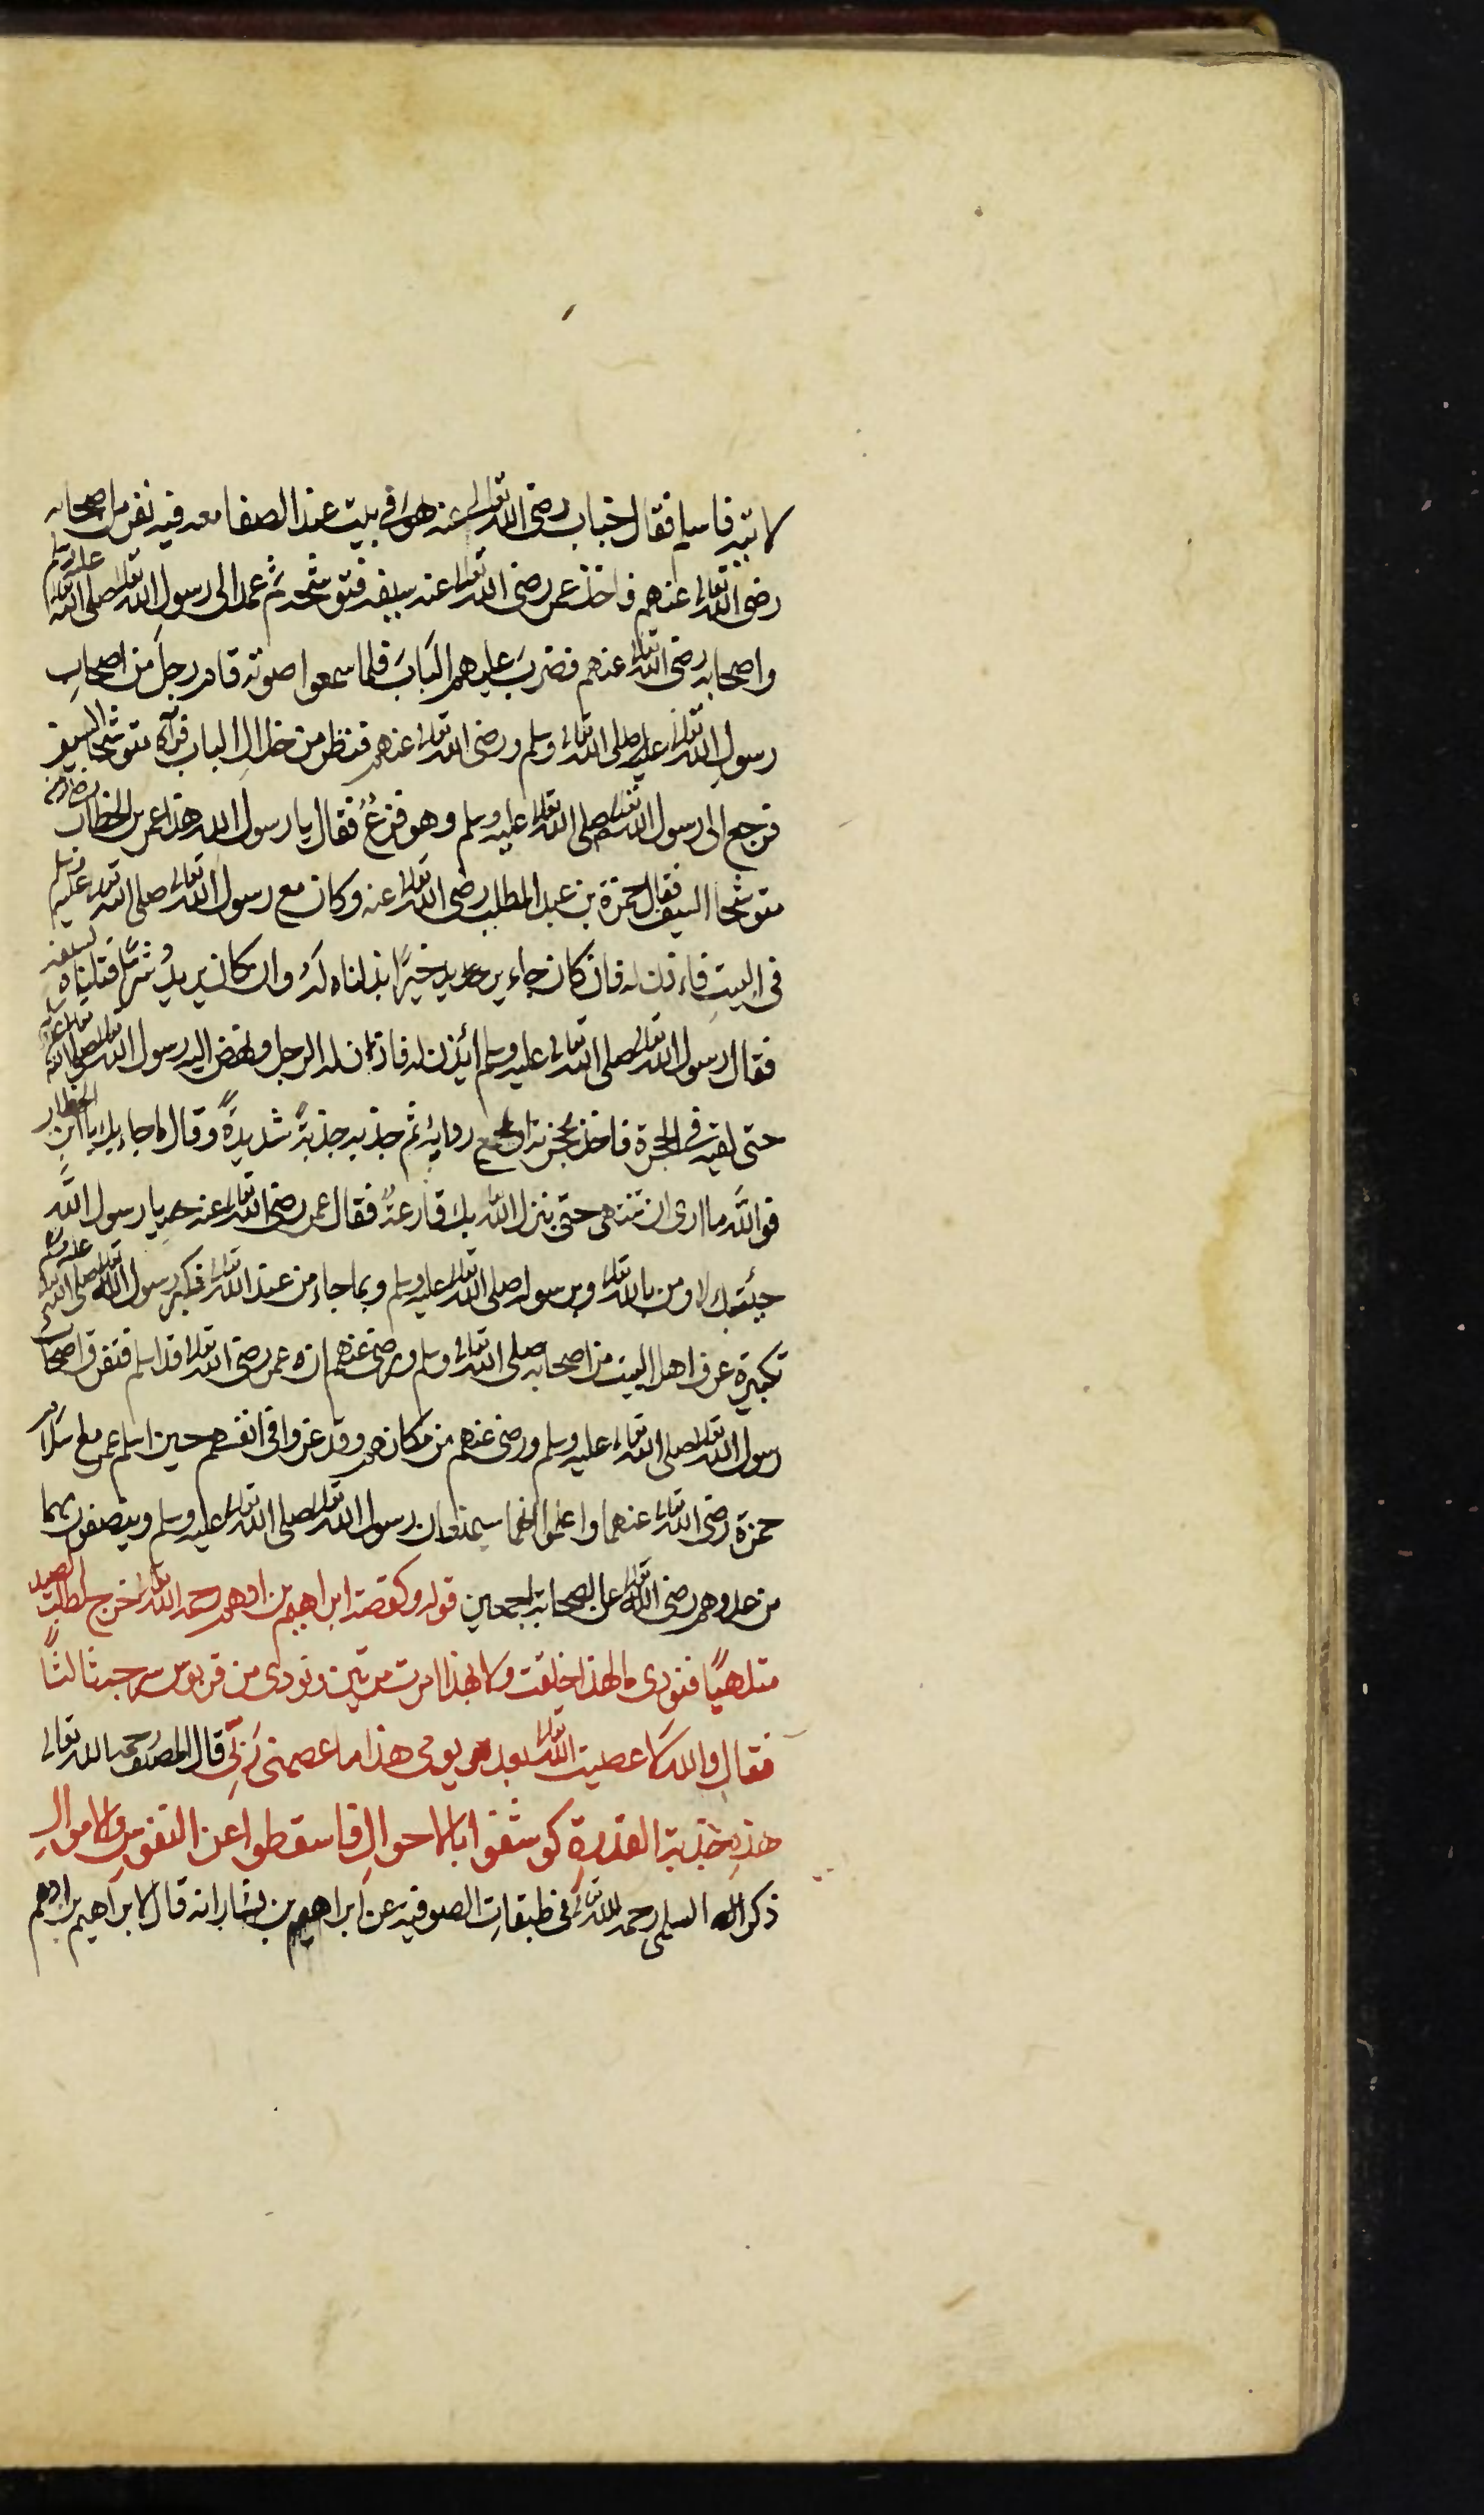 لاتيه فاسلم فقال خباب رضى الله تعالى عنه هو في بيت عند الصفا معه فيه نفر من اصحابه
رضى الله تعالى عنهم فاخذ عمر رضى الله تعالى عنه سيفه فتوشحه ثم عمد الى رسول الله تعالى صلى الله تعالى عليه وسلم
واصحابه رضى الله تعالى عنهم فضرب عليهم الباب فلما سمعوا صوته قام رجل من اصحاب
رسول الله تعالى عليه صلى الله تعالى وسلم ورضى الله تعالى عنهم فنظر من خلال الباب فرآه متوشحا السيف
فرجع الى رسول الله تعالى صلى الله تعالى عليه وسلم وهو فزع فقال يا رسول الله هذا عمر بن الخطاب
متوشحا السيف فقال حمزة بن عبد المطلب رضى الله تعالى عنه وكان مع رسول الله تعالى صلى الله تعالى عليه وسلم
في البيت فاءذن له فان كان جاء يريد خيرًا بذلناه له وان كان يريد شرًّا قتلناه بسيفه
فقال رسول الله تعالى صلى الله تعالى عليه وسلم ائذن له فاذن له الرجل ونهض اليه رسول الله تعالى صلى الله تعالى عليه وسلم
حتى لقيه في الحجرة فاخذ بحجزته او بجمع ردايه ثم جذبه جذبةً شديدةً وقال ما جاء بك يا ابن الخطاب
فوالله ما ارى ان تنتهى حتى ينزل الله بك قارعةً فقال عمر رضى الله تعالى عنه يا رسول الله
جيئتك لاومن بالله تعالى وبرسوله صلى الله تعالى عليه وسلم وبما جاء من عند الله تعالى فكبر رسول الله تعالى صلى الله تعالى عليه وسلم
تكبيرة عرف اهل البيت من اصحابه صلى الله تعالى وسلم ورضى عنهم ان عمر رضى الله تعالى قد اسلم فتفرق اصحاب
رسول الله تعالى صلى الله تعالى عليه وسلم ورضى عنهم من مكانهم وقد عزوا في انفسهم حين اسلم عمر مع اسلام
حمزة رضى الله تعالى عنهما واعلموا انهما سيمنعان رسول الله تعالى صلى الله تعالى عليه وسلم وينتصفون بهما
من عدوهم رضى الله تعالى عن الصحابة اجمعين قوله وكقصة ابراهيم بن ادهم رحمه الله تعالى خرج لطلب الصيد
متلهيًا فنودى ما لهذا خلقت ولا بهذا امرت مرتين ونودى من قربوس سرجه ثالثًا
فقال والله لا عصيت الله تعالى بعد يومى هذا ما عصمنى ربّى قال المصنف رحمه الله تعالى
هذه جذبة القدرة كوشفوا بالاحوال فاسقطوا عن النفوس والاموال
ذكر السلمى رحمه الله تعالى في طبقات الصوفية عن ابراهيم بن بشار انه قال لابراهيم بن ادهم